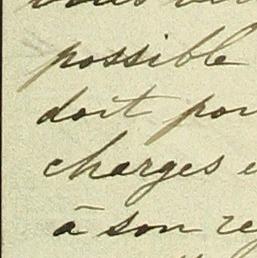 possible
doit pou
charges e
à son re